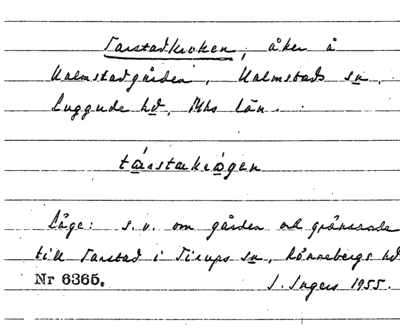 Tarstadkroken, åker å
Halmstadgården, Halmstads sn,
Luggude hd, Mhs län.
társtakrǻgen
Läge: s. v. om gården och gränsande
till Tarstad i Tirups sn, Rönnebergs hd
Nr 6365. I. Ingers 1955.